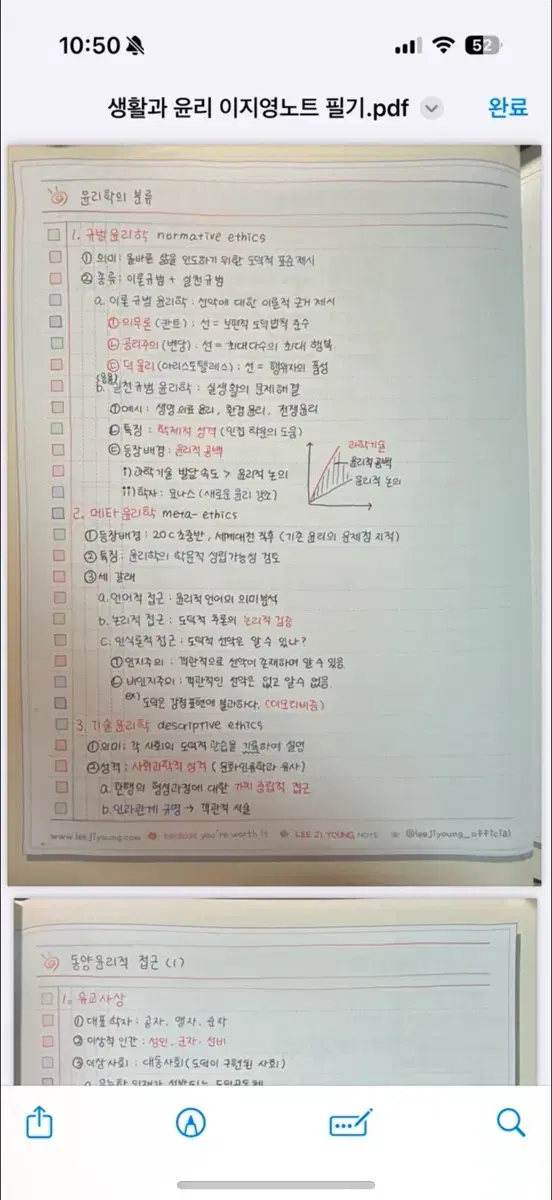 10:50
52
생활과 윤리 이지영노트 필기.pdf
완료
윤리학의 분류
1. 규범윤리학 normative ethics
① 의미 : 올바른 삶을 인도하기 위한 도덕적 표준 제시
② 종류 : 이론규범 + 실천규범
a. 이론 규범 윤리학 : 선악에 대한 이론적 근거 제시
㉠ 의무론 (칸트) : 선 = 보편적 도덕법칙 준수
㉡ 공리주의 (벤담) : 선 = 최대다수의 최대 행복
㉢ 덕 윤리 (아리스토텔레스) : 선 = 행위자의 품성
(응용)
b. 실천규범 윤리학 : 실생활의 문제해결
㉠ 예시 : 생명의료 윤리, 환경윤리, 전쟁윤리
㉡ 특징 : 학제적 성격 (인접 학문의 도움)
㉢ 등장배경 : 윤리적 공백
i) 과학기술 발달 속도 > 윤리적 논의
ii) 학자 : 요나스 (새로운 윤리 강조)
과학기술
윤리적 공백
윤리적 논의
2. 메타 윤리학 meta-ethics
① 등장배경 : 20C 초중반, 세계대전 직후 (기존 윤리의 문제점 지적)
② 특징 : 윤리학의 학문적 성립가능성 검토
③ 세 갈래
a. 언어적 접근 : 윤리적 언어의 의미분석
b. 논리적 접근 : 도덕적 추론의 논리적 검증
c. 인식론적 접근 : 도덕적 선악은 알 수 있나?
㉠ 인지주의 : 객관적으로 선악이 존재하며 알 수 있음
㉡ 비인지주의 : 객관적인 선악은 없고 알 수 없음
ex) 도덕은 감정표현에 불과하다. (이모티비즘)
3. 기술윤리학 descriptive ethics
① 의미 : 각 사회의 도덕적 관습을 기록하여 설명
② 성격 : 사회과학적 성격 (문화인류학과 유사)
a. 관행의 형성과정에 대한 가치 중립적 접근
b. 인과관계 규명 → 객관적 서술
www.leejiyoung.com because you're worth it LEE JI YOUNG NOTE @leejiyoung_official
동양 윤리적 접근 (1)
1. 유교사상
① 대표학자 : 공자. 맹자. 순자
② 이상적 인간 : 성인. 군자. 선비
③ 이상사회 : 대동사회 (도덕이 구현된 사회)